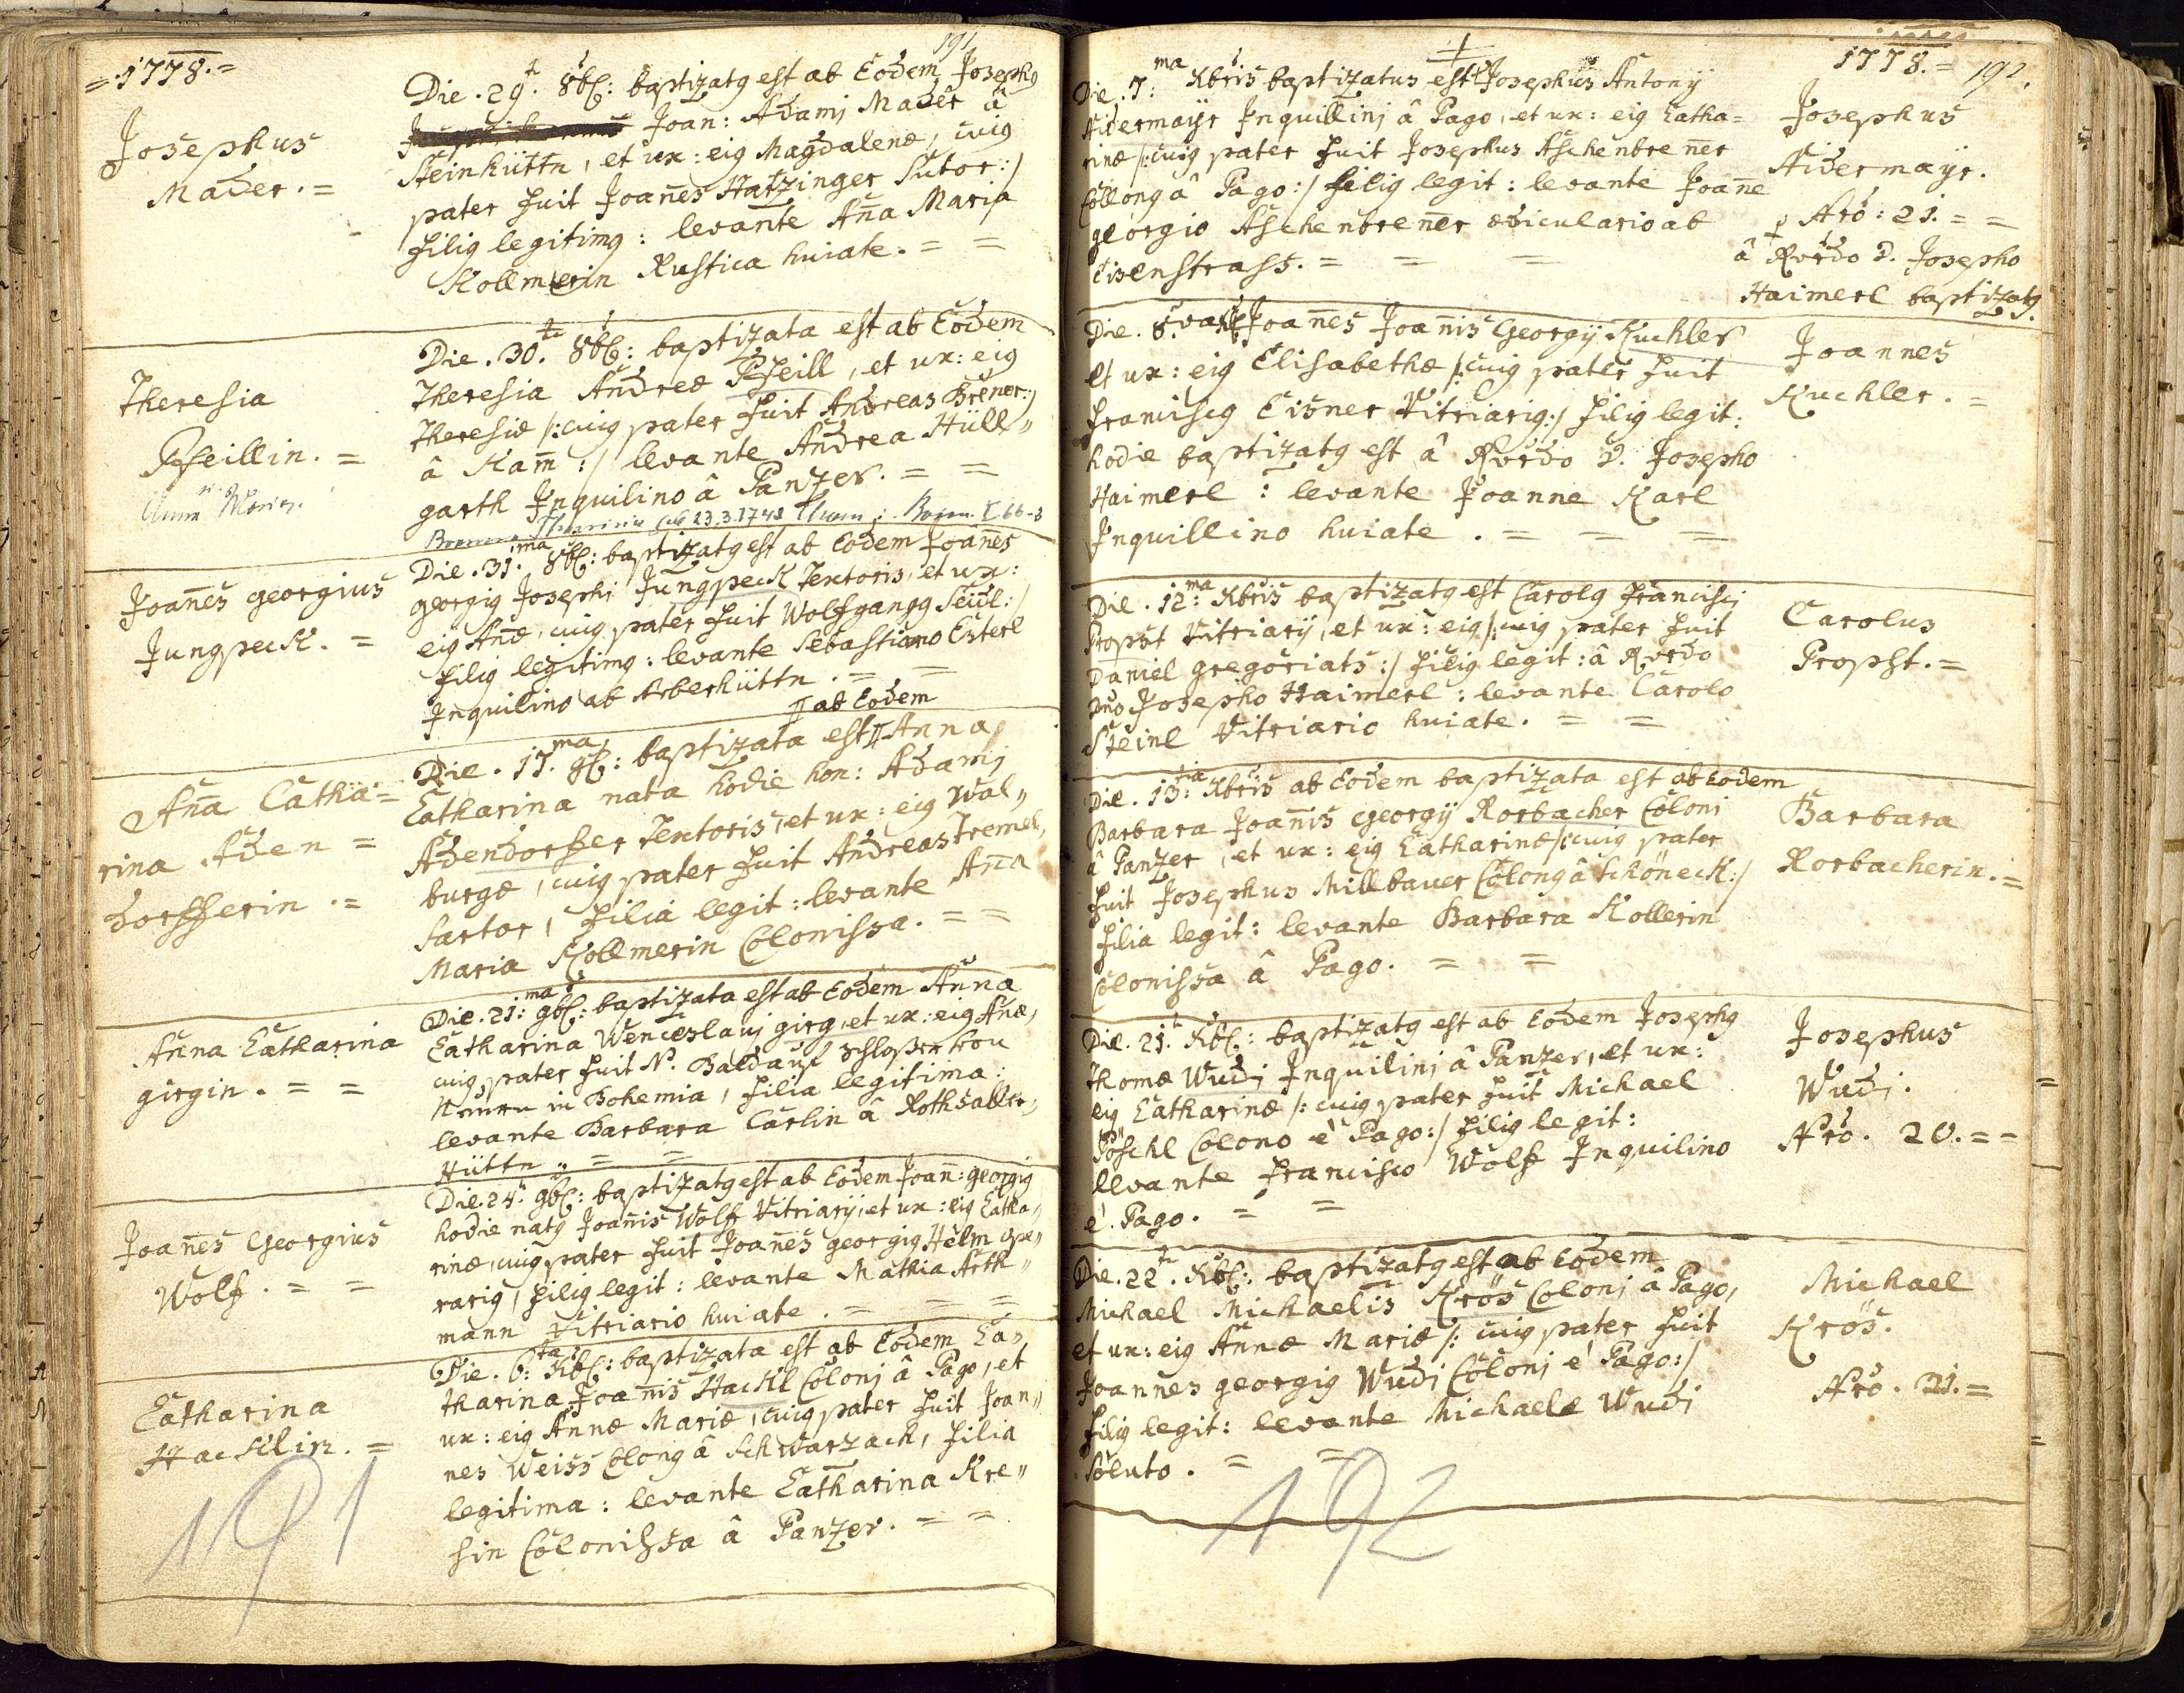 = 1778. =
191
Josephus
Mader. =
Die. 29.t 8b[: baptizatg est ab Eodem Josephg
Joan: Adami Mader â
Steinhüttn, et ux: eig Magdalenæ, cuig
pater fuit Joan̄es Hatzinger Sutor:/
filig legitimg: levante An̄a Maria
Kollmerin Rustica huiate. = =
Theresia
Pfeillin. =
Anna Maria
Die. 30.ta 8b[: baptizata est ab Eodem
Theresia Andreæ Pfeill, et ux: eig
Theresiæ /:cuig pater fuit Andreas Brener:/
â Kam̄:/ levante Andrea Hüll„
garth Jnquilino â Panzer. = =
23.3.1748
Joan̄es georgius
Jungpeck. =
Die. 31.ma 8b[: baptizatg est ab Eodem Joan̄es
georgig Josephi Jungpeck Textoris, et ux:
eig An̄æ, cuig pater fuit Wolfgangg Seidl:/
filig legitimg: levante Sebastiano Esterl
Jnquilino ab Arberhüttn. = =
ab Eodem
An̄a Catha=
rina Aden=
dorfferin. =
Die. 11.ma 9b[: baptizata est Anna
Catharina nata hodie hon: Adami
Adendorffer Textoris, et ux: eig Wal„
burgæ, cuig pater fuit Andreas Tremel,
Sartor, filia legit: levante An̄a
Maria Kollmerin Colonissa. = =
Anna Catharina
girgin. = =
Die. 21:ma 9b[: baptizata est ab Eodem Anna
Catharina Wenceslaui girg, et ux: eig An̄æ,
cuig pater fuit N. Baldauf Schlosser von
in Bohemia, filia legitima:
levante Barbara Carlin â Rothsaller„
Hüttn „ = =
Joan̄es Georgius
Wolf. = =
Die. 24.t 9b[: baptizatg est ab Eodem Joan̄: georgig
hodie natg Joan̄is Wolf Vitriarij, et ux: eig Catha„
rinæ, cuig pater fuit Joan̄es georgig Helm ope„
rarig, filig legit: levante Mathia Arth„
mann Vitriario huiate. = = =
Catharina
Hacklin. =
Die. 6:ta Xb[: baptizata est ab Eodem Ca„
tharina Joan̄is Hackl Coloni â Pago, et
ux: eig Annæ Mariæ, cuig pater fuit Joan„
nes Weiss Colong â Schwarzach, filia
legitima: levante Catharina Kre„
sin Colonissa â Panzer. = =
191
1778. = 192.
Die. 7:ma Xbris baptizatus est Josephus Antonij
Aidermayr Jnquillini â Pago, et ux: eig Catha=
rinæ /:cuig pater fuit Josephus Aschenbren̄er
Collong â Pago:/ filig legit: levante Joan̄e
georgio Aschenbren̄er ædiculario ab
Eisenstrass. = = =
Josephus
Aidermayr.
p Nrō: 21. = =
â Rvrdo D. Josepho
Haimerl baptizatg.
Die. 8.va Joan̄es Joan̄is Georgij Kuchler
et ux: eig Elisabethæ /:cuig pater fuit
Franciscg Eisner Vitriarig:/ filig legit:
hodie baptizatg est â Rvrdo D. Josepho
Haimerl: levante Joanne Karl
Jnquillino huiate. = = =
Joannes
Kuchler. =
Die. 12:ma Xbris baptizatg est Carolg Francisci
Propst Vitriarij, et ux: eig /:cuig pater fuit
Daniel gregoriats:/ filig legit: â Rvrdo
Dn̄o Josepho Haimerl: levante Carolo
Steinl Vitriario huiate. = =
Carolus
Propst. =
Die. 13:tia Xbris ab Eodem baptizata est ab Eodem
Barbara Joan̄is Georgij Rorbacher Coloni
â Panzer, et ux: eig Catharinæ /:cuig pater
fuit Josephus Millbauer Colong â Schöneck:/
filia legit: levante Barbara Kollerin
Colonissa â Pago. = =
Barbara
Rorbacherin. =
Die. 21.t Xb[: baptizatg est ab Eodem Josephg
Thomæ Wudi Jnquilini â Panzer, et ux:
eig Catharinæ /: cuig pater fuit Michael
Pöschl Colono è Pago:/ filig legit:
levante Francisco Wolf Jnquilino
è Pago. = =
Josephus
Wudi.
Nrō. 20. = =
Die. 22.t Xb[: baptizatg est ab Eodem
Michael Michaelis Krös Coloni â Pago,
et ux: eig Annæ Mariæ /: cuig pater fuit
Joannes georgig Wudi Coloni è Pago:/
filig legit: levante Michaele Wudi
Soluto. = =
Michael
Krös.
Nrō. 21. =
192